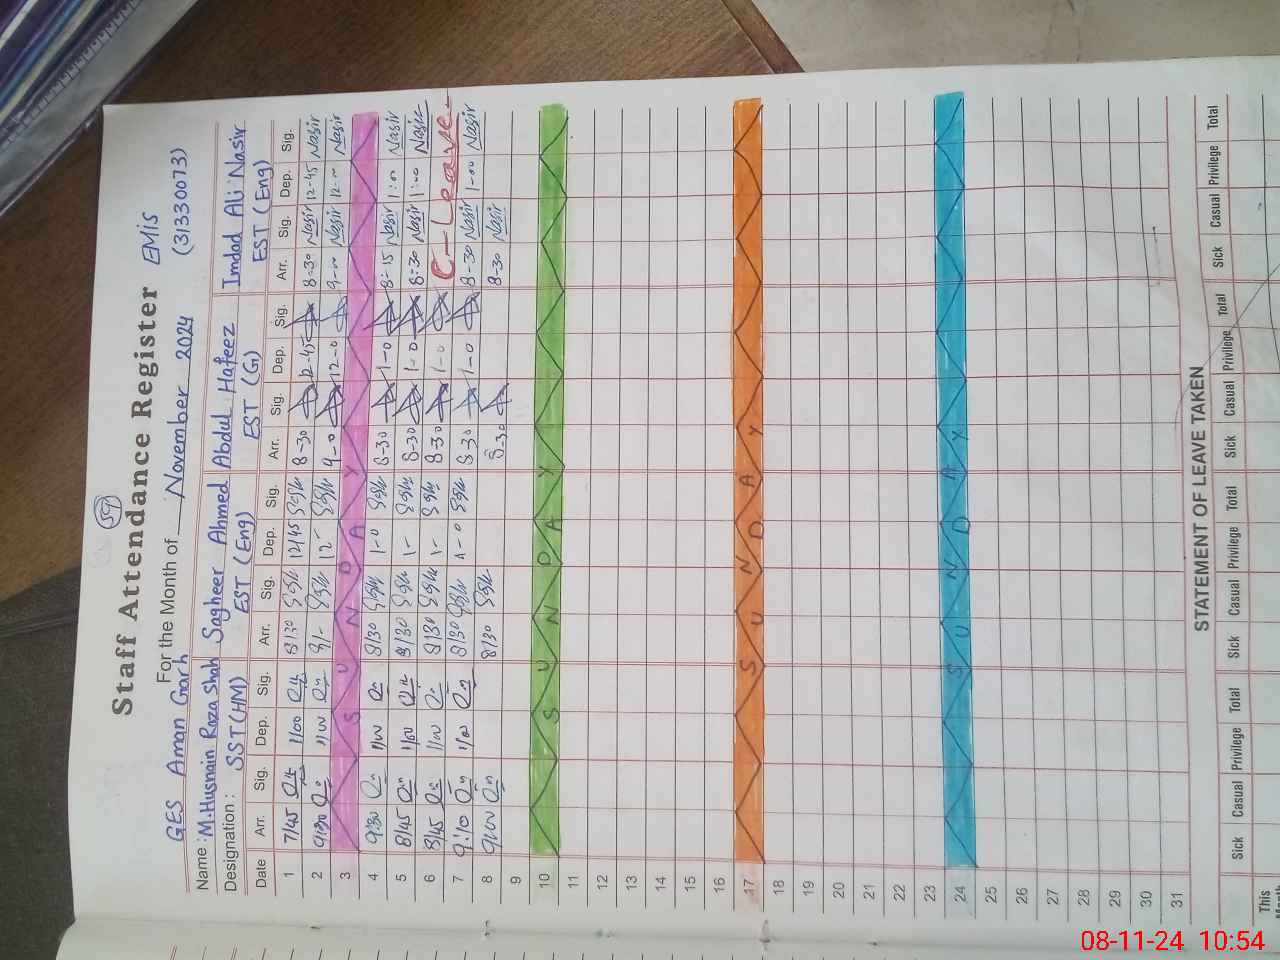 59
Staff Attendance Register
GES Aman Garh For the Month of November 2024 EMIS (31330073)
Name : M.Husnain Raza Shah Sagheer Ahmed Abdul Hafeez Imdad Ali Nasir
Designation : SST(HM) EST (Eng) EST (G) EST (Eng)
Date Arr. Sig. Dep. Sig. Arr. Sig. Dep. Sig. Arr. Sig. Dep. Sig. Arr. Sig. Dep. Sig.
1 7/45 1/00 8/30 12/45 8-30 12-45 8-30 Nasir 12-45 Nasir
2 9/30 1/00 9/- 12- 9-0 12-0 9-00 Nasir 12-00 Nasir
3 SUNDAY
4 9:30 1/00 8/30 1-0 8-30 1-0 8-15 Nasir 1:00 Nasir
5 8/45 1/00 8/30 1- 8-30 1-0 8-30 Nasir 1:00 Nasir
6 8/45 1/00 8/30 1- 8-30 1-0 C-Leave-
7 9:10 1/00 8/30 1-0 8-30 1-0 8-30 Nasir 1-00 Nasir
8 9/00 8/30 8-30 8-30 Nasir
9
10 SUNDAY
11
12
13
14
15
16
17 SUNDAY
18
19
20
21
22
23
24 SUNDAY
25
26
27
28
29
30
31
STATEMENT OF LEAVE TAKEN
Sick Casual Privilege Total Sick Casual Privilege Total Sick Casual Privilege Total Sick Casual Privilege Total
This
08-11-24 10:54